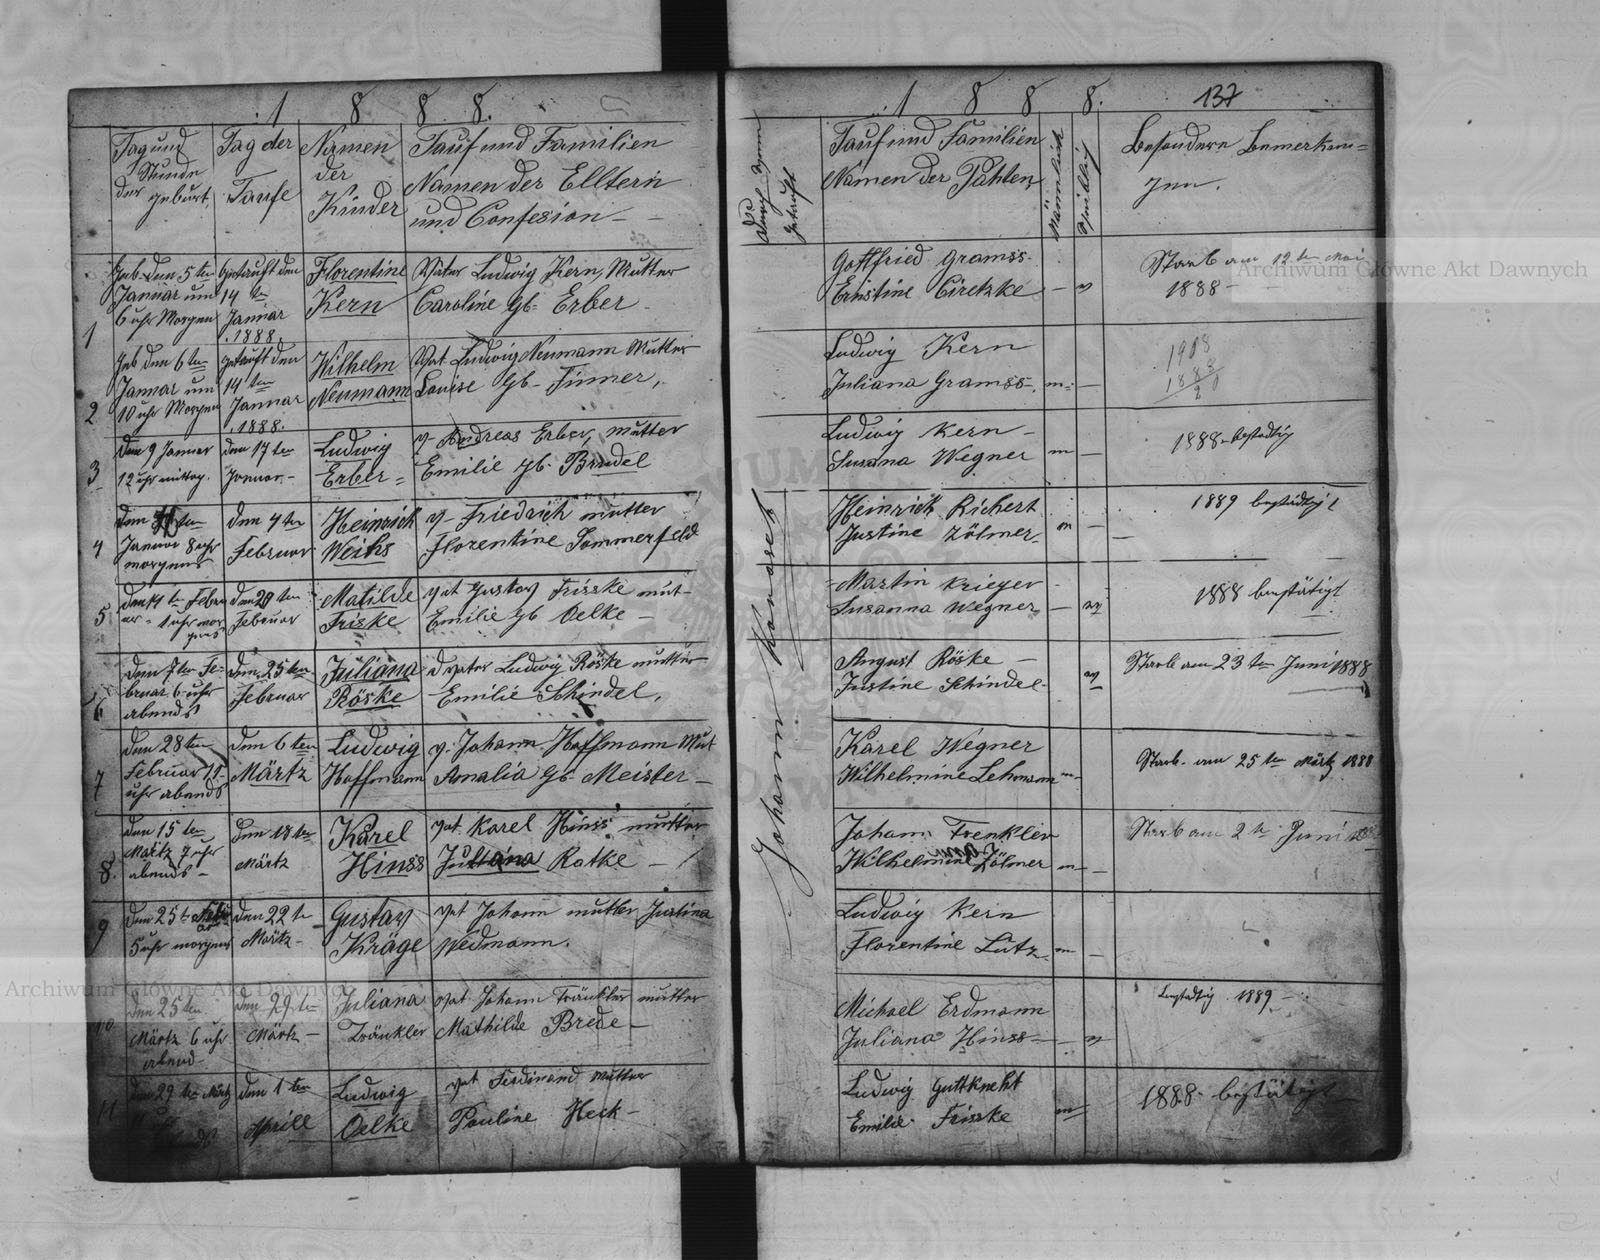 1 8 8 8.
Tag und Stunde der geburt.
Tag der Taufe
Namen der Kinder
Tauf und Familien
Namen der Elltern
und Confesion
1
Geb. den 5 ten
Januar um
6 uhr Morgen
Getauft den
14 ten
Januar
1888
Florentine
Kern
Vater Ludwig Kern, Mutter
Caroline Gb. Erber
2
Geb den 6 ten
Januar um
10 uhr Morgen
getauft den
14 ten
Januar
1888.
Wilhelm
Neumann
Vat. Ludwig Neumann Mutter
Louise Gb. Finner,
3
den 9 Januar
12 uhr mittag.
den 17 ten
Januar
Ludwig
Erber
v. Andreas Erber, mutter
Emilie gb. Bredel
4
den ten
Januar 8 uhr
morgens
den 4 ten
Februar
Heinrich
Weihs
v. Friedrich mutter
Florentine Sommerfeld
5
den 14 te Febru
ar 1 uhr mor
gens
den 20 ten
Februar
Matilde
Friske
vat Gustav Frisske mut-
Emilie Gb Oelke
6
den 7 ten Fe-
bruar 6 uhr
abends
den 25 ten
Februar
Juliana
Röske
d vater Ludwig Röske mutter
Emilie Schindel,
7
den 28 ten
Februar 11
uhr abends
den 6 ten
Märtz
Ludwig
Hoffmann
v. Johann Hoffmann Mut
Amalia Gb. Meister
8.
den 15 ten
Märtz 7 uhr
abends
den 18 ten
Märtz
Karel
Hinss
vat. Karel Hinss mutter
Juliana Ratke
9
den 25 te
5 uhr morgens
den 22 te
Märtz
Gustav
Kräge
vat Johann mutter Justina
Wedmann.
10
den 25 ten
Märtz 6 uhr
abend
den 29 ten
Märtz
Juliana
Tränkler
vat. Johann Tränkler mutter
Mathilde Brede
11
den 29 ten Märtz
den 1 ten
Aprill
Ludwig
Oelke
vat Ferdinand mutter
Pauline Heck
1 8 8 8.
137
getauft
Tauf und Familien
Namen der Pahten
Männlich
Besondere Bemerkun=
gen.
Johann
Gottfried Gramss
Ernstine Ciretzke
Starb am 12 ten Mai
1888
Ludwig Kern
Juliana Gramss
m
1908
1888
20
Ludwig Kern
Susanna Wegner
m
1888 bestadtig
Heinrich Richert
Justine Zölmer
m
1889 bestädtigt
Martin Krieger
Susanna Wegner
1888 bestätigt
August Röske
Justine Schindel
Starb am 23 ten Juni 1888
Karel Wegner
Wilhelmine Lehmann
m
Starb. am 25 ten Märtz 1888
Johann Trenkler
Wilhelmine Zölmer
m
Starb am 2 te Juni 1888
Ludwig Kern
Florentine Lutz
m
Michael Erdmann
Juliana Hinss
bestadtig 1889
Ludwig Guttkneht
Emilie Frisske
m
1888 bestätigt
Archiwum Główne Akt Dawnych
Archiwum Główne Akt Dawnych